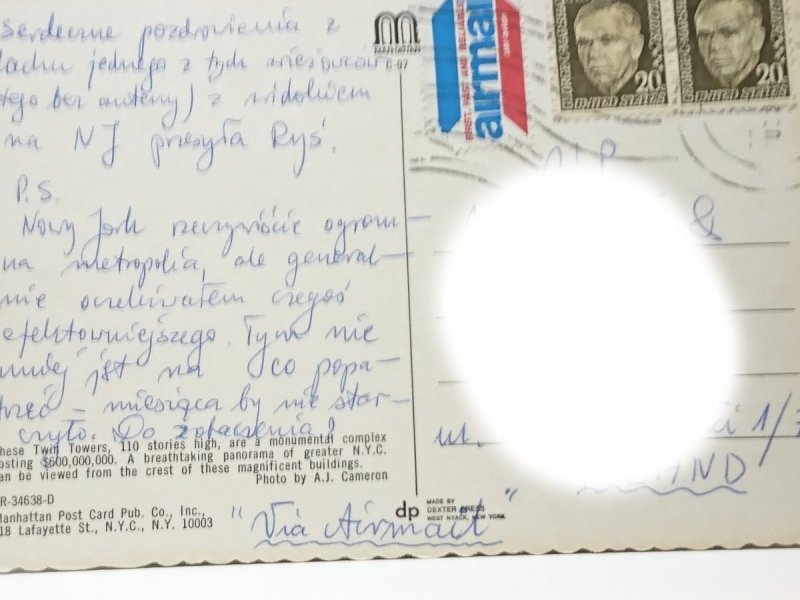 serdeczne pozdrowienia z
dachu jednego z tych wieżowców
(tego bez anteny) z widokiem
na NJ przesyła Ryś.
P.S.
Nowy Jork rzeczywiście ogrom-
na metropolia, ale general-
nie oczekiwałem czegoś
efektowniejszego. Tym nie
mniej jest na co popa-
trzeć - miesiąca by nie star-
czyło. Do zobaczenia!
hese Twin Towers, 110 stories high, are a monumental complex
osting $600,000,000. A breathtaking panorama of greater N.Y.C.
an be viewed from the crest of these magnificent buildings.
Photo by A.J. Cameron
R-34638-D
Manhattan Post Card Pub. Co., Inc.,
18 Lafayette St., N.Y.C., N.Y. 10003
MANHATTAN
C-97
airmail
GEORGE C. MARSHALL
20c
UNITED STATES
20c
UNITED STATES
&
ul. 1/7
LAND
dp
MADE BY
DEXTER PRESS
WEST NYACK, NEW YORK
"Via Airmail"